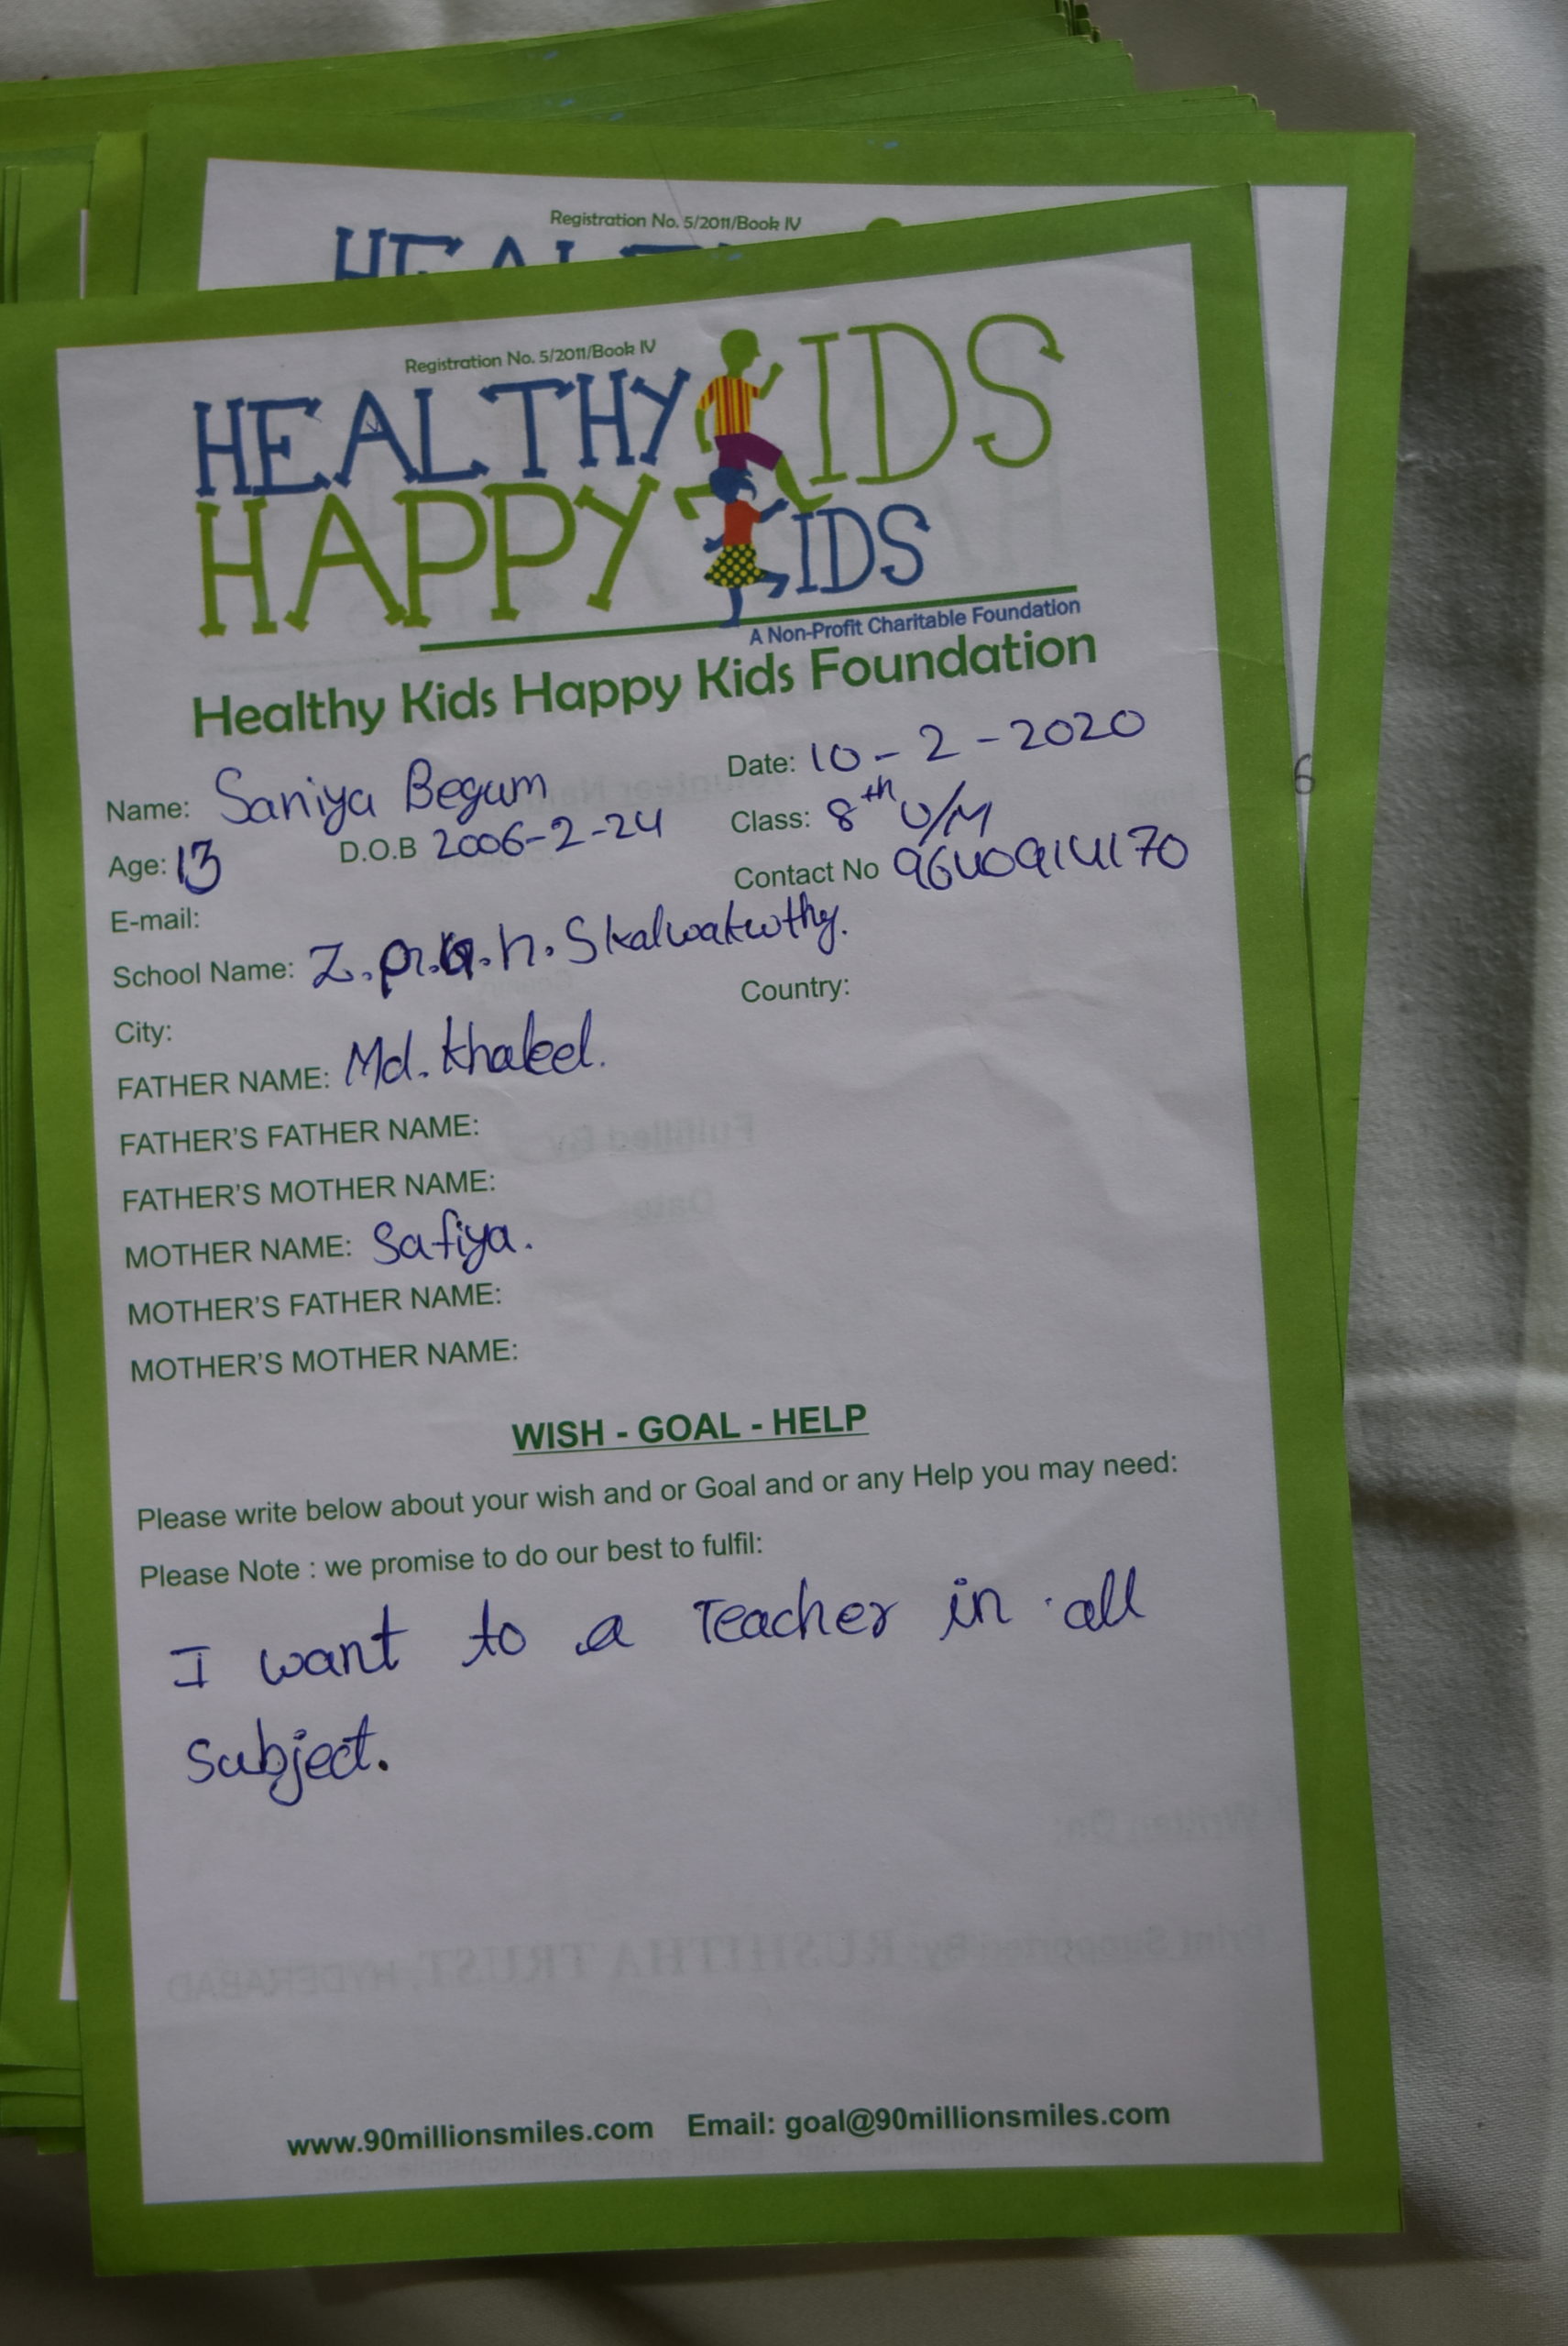 Registration No. 5/2011/Book IV
Registration No. 5/2011/Book IV
HEALTHY KIDS
HAPPY KIDS
A Non-Profit Charitable Foundation
Healthy Kids Happy Kids Foundation
Name: Saniya Begum Date: 10-2-2020
Age: 13 D.O.B 2006-2-24 Class: 8th U/M
E-mail: Contact No 9640914170
School Name: Z.p.G.h.Skalwakwthy.
City: Country:
FATHER NAME: Md. Khaleel.
FATHER'S FATHER NAME:
FATHER'S MOTHER NAME:
MOTHER NAME: Safiya.
MOTHER'S FATHER NAME:
MOTHER'S MOTHER NAME:
WISH - GOAL - HELP
Please write below about your wish and or Goal and or any Help you may need:
Please Note : we promise to do our best to fulfil:
I want to a Teacher in all
subject.
www.90millionsmiles.com Email: goal@90millionsmiles.com
6